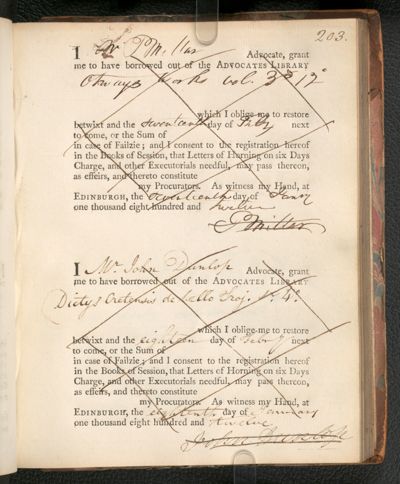 203.
I Mr P Millar Advocate, grant
me to have borrowed out of the ADVOCATES LIBRARY
Otways Works vol. 3d 12o
which I oblige me to restore
betwixt and the seventeenth day of Feby next
to come, or the Sum of
in case of Failzie; and I consent to the registration hereof
in the Books of Session, that Letters of Horning on six Days
Charge, and other Executorials needful, may pass thereon,
as effeirs, and thereto constitute
my Procurators. As witness my Hand, at
EDINBURGH, the seventeenth day of Jany
one thousand eight hundred and twelve
P Millar
I Mr. John Dunlop Advocate, grant
me to have borrowed out of the ADVOCATES LIBRARY
Dictys Cretensis de bello Troj. 4o.
which I oblige-me to restore
betwixt and the eighteen day of Febry next
to come, or the Sum of
in case of Failzie; and I consent to the registration hereof
in the Books of Session, that Letters of Horning on six Days
Charge, and other Executorials needful, may pass thereon,
as effeirs, and thereto constitute
my Procurators. As witness my Hand, at
EDINBURGH, the eighteenth day of January
one thousand eight hundred and twelve
John Dunlop